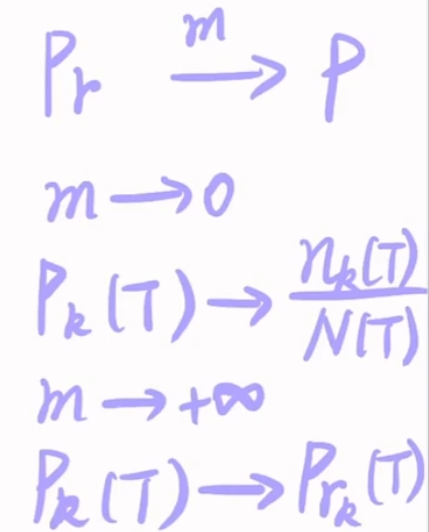 Pᵣ —m→ P
m → 0
Pₖ(T) → nₖ(T)/N(T)
m → +∞
Pₖ(T) → Pᵣₖ(T)